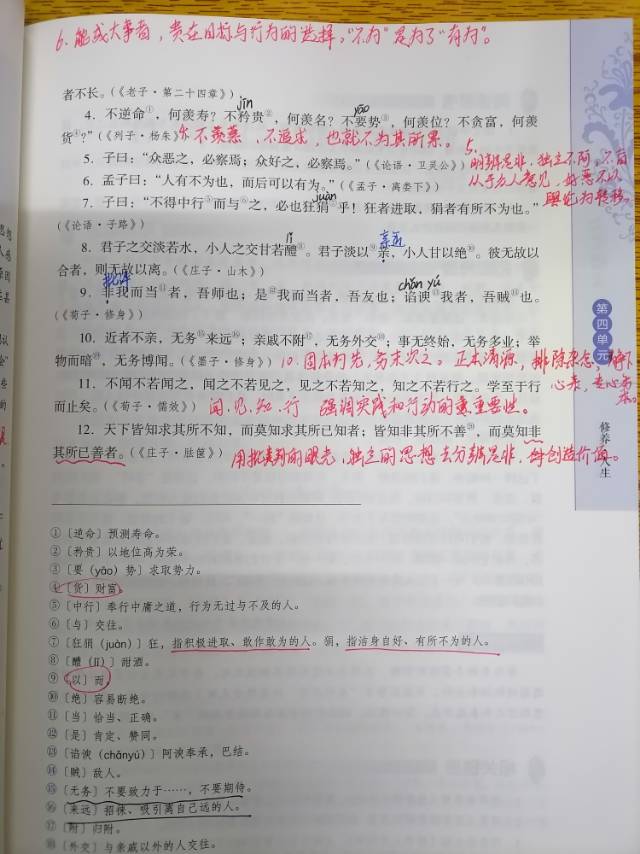 6. 能成大事者，贵在目标与行为的选择，"不为"是为了"有为"。
者不长。（《老子·第二十四章》）
jīn yāo
4．不逆命①，何羡寿？不矜贵②，何羡名？不要势③，何羡位？不贪富，何羡
货④？"（《列子·杨朱》） 不羡慕、不追求，也就不为其所累。
5.
5．子曰："众恶之，必察焉；众好之，必察焉。"（《论语·卫灵公》） 明辨是非，独立不阿，不盲
6．孟子曰："人有不为也，而后可以有为。"（《孟子·离娄下》） 从于为人意见，好恶不以
juàn
7．子曰："不得中行⑤而与⑥之，必也狂狷⑦乎！狂者进取，狷者有所不为也。" 舆论为转移。
（《论语·子路》）
lǐ 亲近
8．君子之交淡若水，小人之交甘若醴⑧。君子淡以⑨亲，小人甘以绝⑩。彼无故以
合者，则无故以离。（《庄子·山木》）
批评 chǎn yú
9．非我而当⑪者，吾师也；是⑫我而当者，吾友也；谄谀⑬我者，吾贼⑭也。
（《荀子·修身》）
10．近者不亲，无务⑮来远⑯；亲戚不附⑰，无务外交⑱；事无终始，无务多业；举
物而暗⑲，无务博闻。（《墨子·修身》） 10. 固本为先，务末次之。正本清源，排除杂念，
11．不闻不若闻之，闻之不若见之，见之不若知之，知之不若行之。学至于行
而止矣。（《荀子·儒效》） 闻、见、知、行 强调实践和行动的重要性。
12．天下皆知求其所不知，而莫知求其所已知者；皆知非其所不善⑳，而莫知非
其所已善者。（《庄子·胠箧》） 用批判的眼光，独立的思想去分辨是非，创造价值。
第四单元
修养人生
①〔逆命〕预测寿命。
②〔矜贵〕以地位高为荣。
③〔要（yāo）势〕求取势力。
④〔货〕财富。
⑤〔中行〕奉行中庸之道，行为无过与不及的人。
⑥〔与〕交往。
⑦〔狂狷（juàn）〕狂，指积极进取、敢作敢为的人。狷，指洁身自好、有所不为的人。
⑧〔醴（lǐ）〕甜酒。
⑨〔以〕而。
⑩〔绝〕容易断绝。
⑪〔当〕恰当、正确。
⑫〔是〕肯定、赞同。
⑬〔谄谀（chǎnyú）〕阿谀奉承，巴结。
⑭〔贼〕敌人。
⑮〔无务〕不要致力于……，不要期待。
⑯〔来远〕招徕、吸引离自己远的人。
⑰〔附〕归附。
⑱〔外交〕与亲戚以外的人交往。